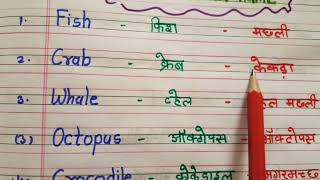 1. Fish - फिश - मछली
2. Crab - क्रेब - केकड़ा
3. Whale - व्हेल - मछली
(3) Octopus - ऑक्टोपस - ऑक्टोपस
Crocodile - मगरमच्छ